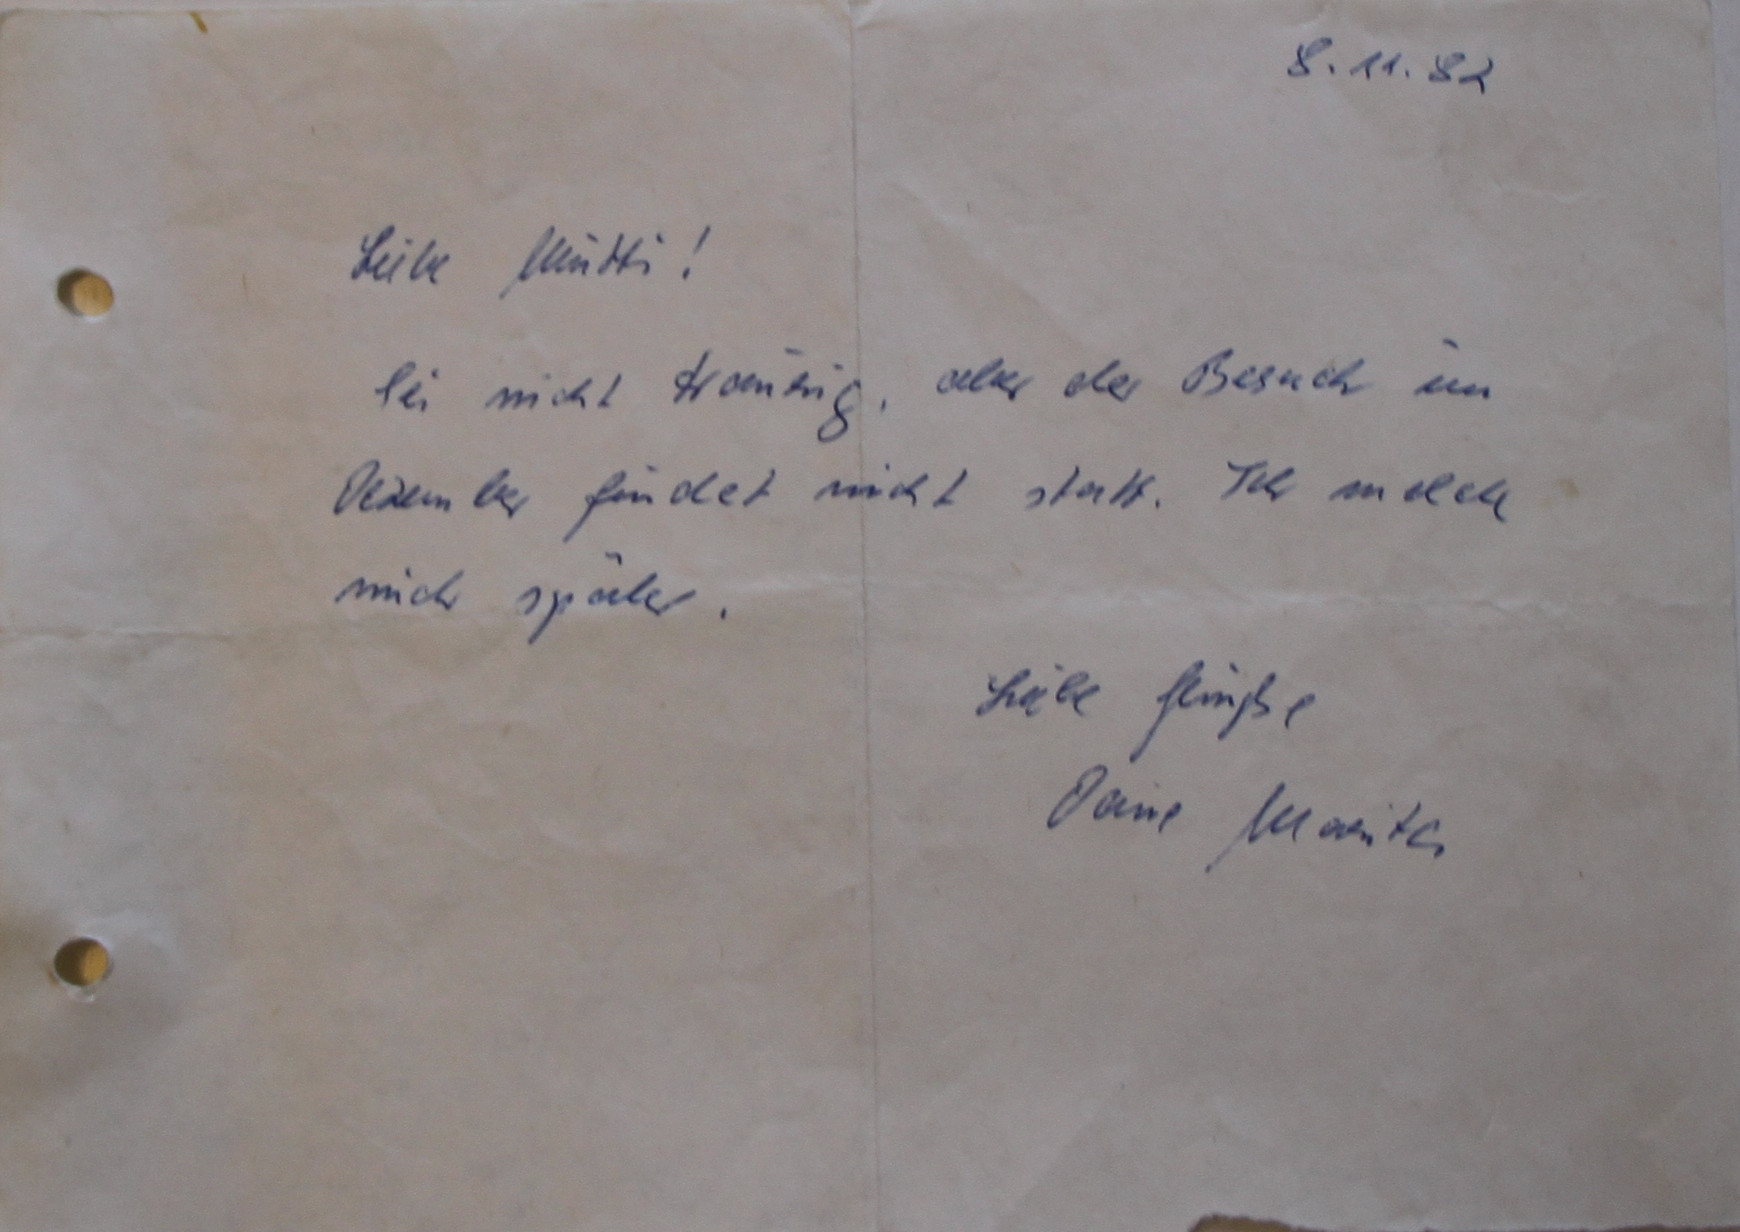 8.11.82
Liebe Mutti!
Sei nicht traurig, aber der Besuch im
Dezember findet nicht statt. Ich melde
mich später.
Liebe Grüße
Deine Marita